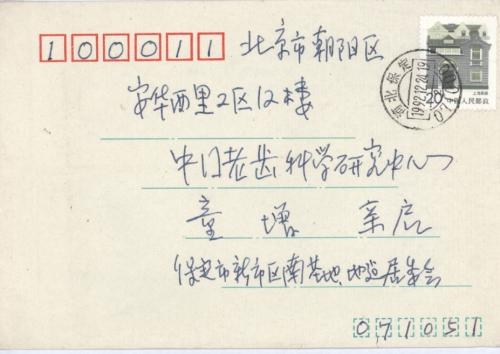 100011 北京市朝阳区
安华西里2区12楼
中日老龄科学研究中心
童增 亲启
保定市新市区南基地 居委会
071051
河北保定
1992.12.24.19
上海民居
20 中国人民邮政